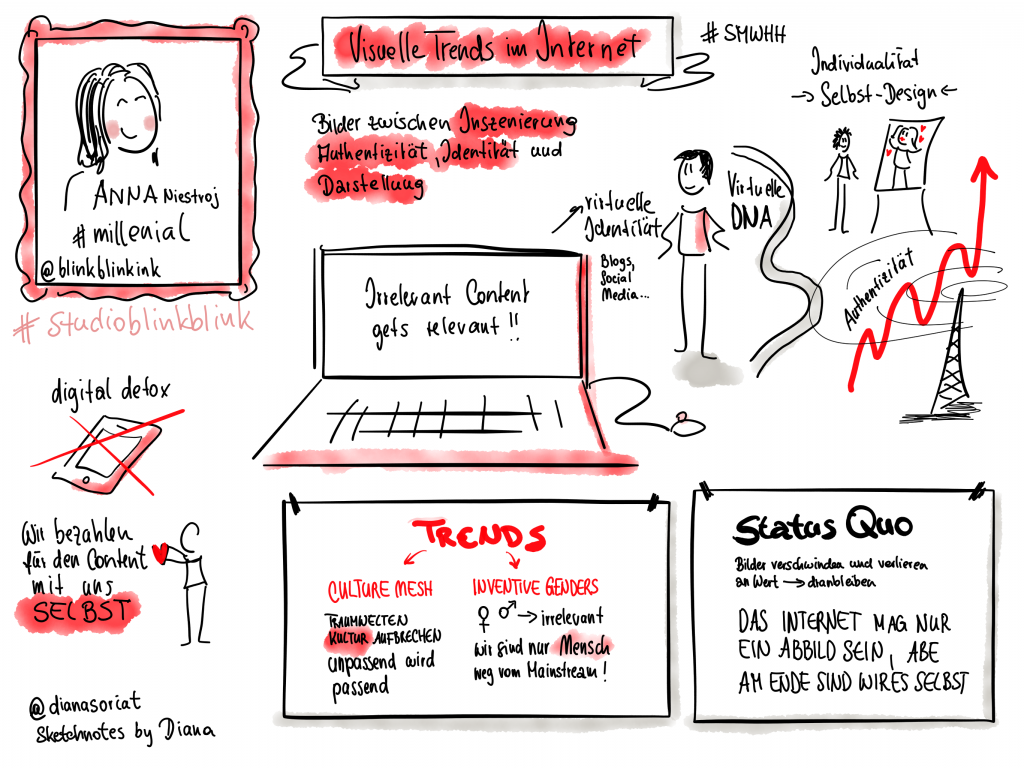 Visuelle Trends im Internet
#SMWHH
ANNA Niestroj
#millenial
@blinkblinkink
#studioblinkblink
Bilder zwischen Inszenierung
Authentizität, Identität und
Darstellung
virtuelle
Identität
Blogs,
Social
Media...
Virtuelle
DNA
Individualität
→ Selbst-Design ←
Authentizität
Irrelevant Content
gets relevant!!
digital detox
Wir bezahlen
für den Content
mit uns
SELBST
TRENDS
CULTURE MESH
TRAUMWELTEN
KULTUR AUFBRECHEN
unpassend wird
passend
INVENTIVE GENDERS
♀ ♂ → irrelevant
wir sind nur Mensch
weg vom Mainstream!
Status Quo
Bilder verschwinden und verlieren
an Wert → dranbleiben
DAS INTERNET MAG NUR
EIN ABBILD SEIN, ABE
AM ENDE SIND WIR'ES SELBST
@dianasoriat
Sketchnotes by Diana